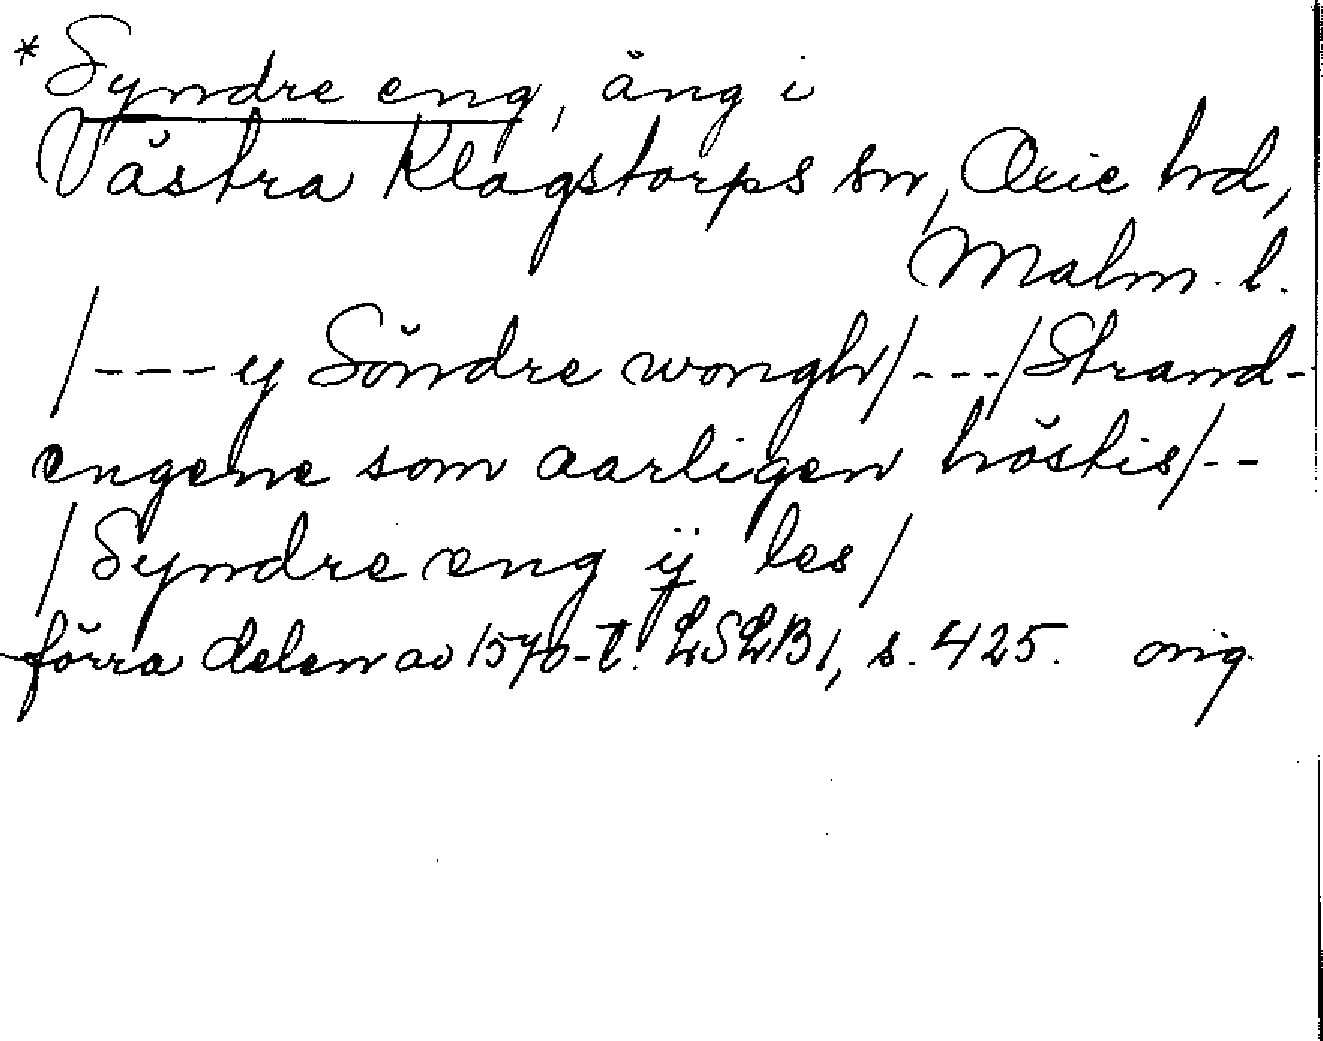 *Syndre eng, äng i
Västra Klagstorps sn, Oxie hd,
Malm. l.
/---y Söndre wongh/---/Strand-
engene som aarligen höstis/--
/Syndre eng ij les/
förra delen av 1570-t. LSLB1, s. 425. orig.